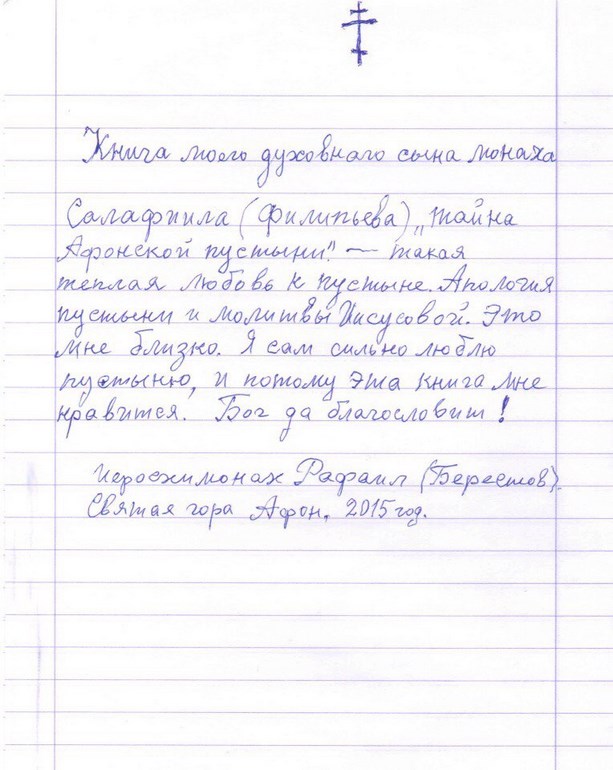 Книга моего духовнаго сына монаха
Салафиила (Филипьева) „Тайна
Афонской пустыни." — такая
теплая любовь к пустыне. Апология
пустыни и молитвы Иисусовой. Это
мне близко. Я сам сильно люблю
пустыню, и потому эта книга мне
нравится. Бог да благословит!
иеросхимонах Рафаил (Берестов).
Святая гора Афон. 2015 год.